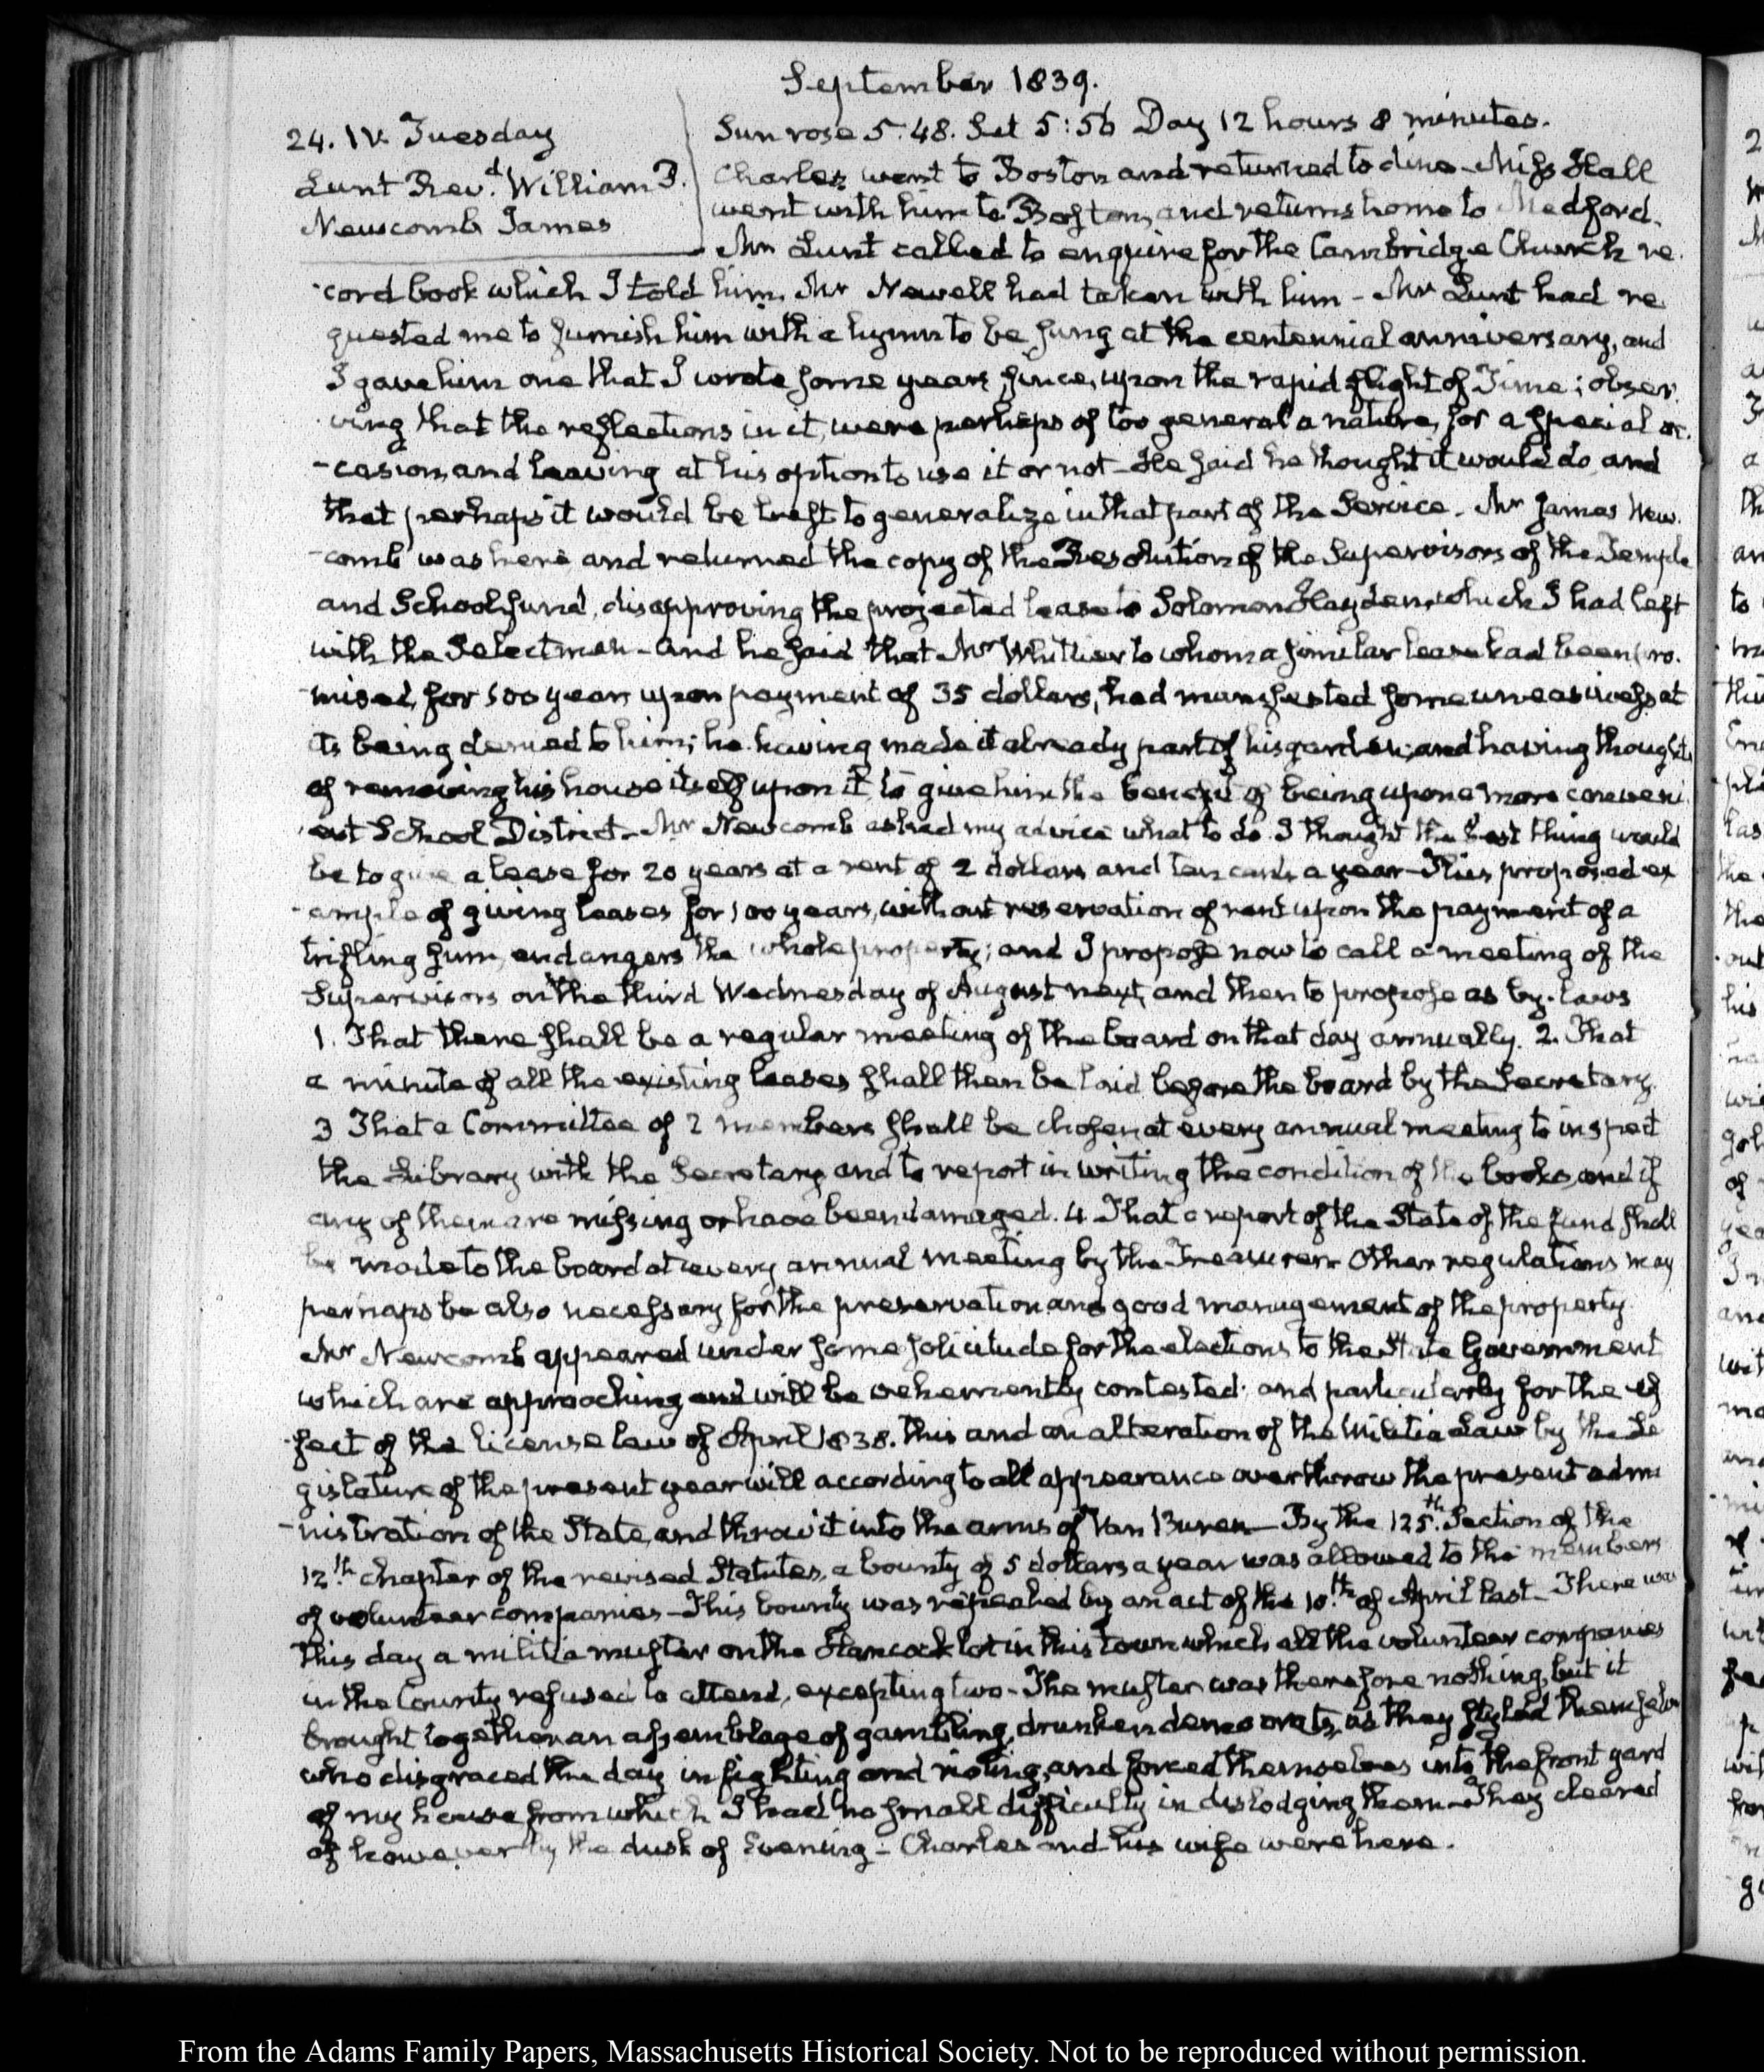 September 1839.
24. IV. Tuesday
Lunt Rev.d William P.
Newcomb James
Sun rose 5:48. Set 5:56 Day 12 hours 8 minutes.
Charles went to Boston and returned to dine - Miss Hall
went with him to Boston, and returns home to Medford.
Mr Lunt called to enquire for the Cambridge Church re-
-cord book which I told him, Mr Newell had taken with him - Mr Lunt had re-
quested me to furnish him with a hymn to be sung at the centennial anniversary, and
I gave him one that I wrote some years since, upon the rapid flight of Time; obser-
ving that the reflections in it, were perhaps of too general a nature, for a special oc-
-casion, and leaving at his option to use it or not - He said he thought it would do, and
that perhaps it would be best to generalize in that part of the Service. Mr James New-
-comb was here and returned the copy of the Resolution of the Supervisors of the Temple
and School fund, disapproving the projected lease to Solomon Hayden, which I had left
with the Selectmen - and he said that Mr Whittier to whom a similar lease had been pro-
-mised, for 100 years upon payment of 35 dollars, had manifested some uneasiness at
its being denied to him; he having made it already part of his garden; and having thoughts
of removing his house itself upon it, to give him the benefit of being upon a more conveni-
-ent School District. Mr Newcomb asked my advice what to do. I thought the best thing would
be to give a lease for 20 years at a rent of 2 dollars and ten cents a year - This proposed ex-
-ample of giving leases for 100 years, without reservation of rent upon the payment of a
trifling sum, endangers the whole property; and I propose now to call a meeting of the
Supervisors on the third Wednesday of August next, and then to propose as by-laws
1. That there shall be a regular meeting of the board on that day annually. 2. That
a minute of all the existing leases shall then be laid before the board by the Secretary.
3 That a Committee of 2 members shall be chosen at every annual meeting to inspect
the Library with the Secretary and to report in writing the condition of the books, and if
any of them are missing or have been damaged. 4 That a report of the State of the fund shall
be made to the board at every annual meeting by the Treasurer. Other regulations may
perhaps be also necessary for the preservation and good management of the property.
Mr Newcomb appeared under some solicitude for the elections to the State Government
which are approaching and will be vehemently contested; and particularly for the ef-
-fect of the license law of April 1838. this and an alteration of the Militia Law by the Le-
gislature of the present year will according to all appearance overthrow the present admi-
-nistration of the State, and throw it into the arms of Van Buren - By the 125.th Section of the
12.th chapter of the revised Statutes, a bounty of 5 dollars a year was allowed to the members
of volunteer companies - This bounty was repealed by an act of the 10.th of April last - There was
this day a militia muster on the Hancock lot in this town which all the volunteer companies
in the County refused to attend, excepting two - The muster was therefore nothing, but it
brought together an assemblage of gambling, drunken democrats, as they styled themselves
who disgraced the day in fighting and rioting, and forced themselves into the front yard
of my house from which I had no small difficulty in dislodging them - They cleared
off however by the dusk of Evening - Charles and his wife were here.
From the Adams Family Papers, Massachusetts Historical Society. Not to be reproduced without permission.